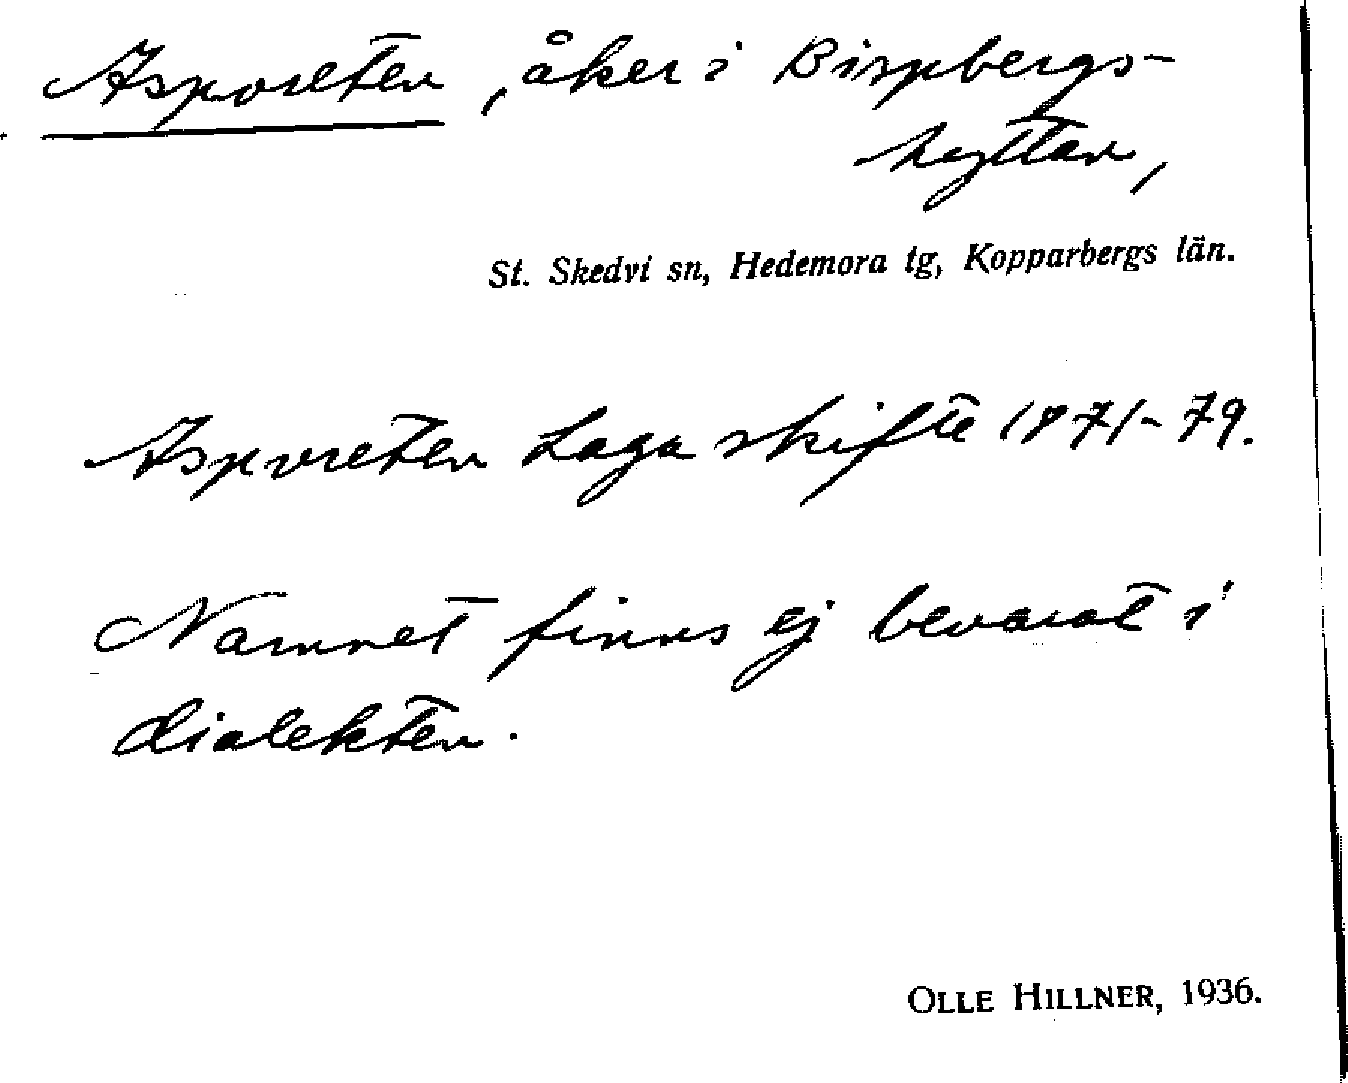 Aspvreten, åker i Bispbergs-
hyttan,
St. Skedvi sn, Hedemora tg, Kopparbergs län.
Aspvreten Laga skifte 1871-79.
Namnet finns ej bevarat i
dialekten.
OLLE HILLNER, 1936.